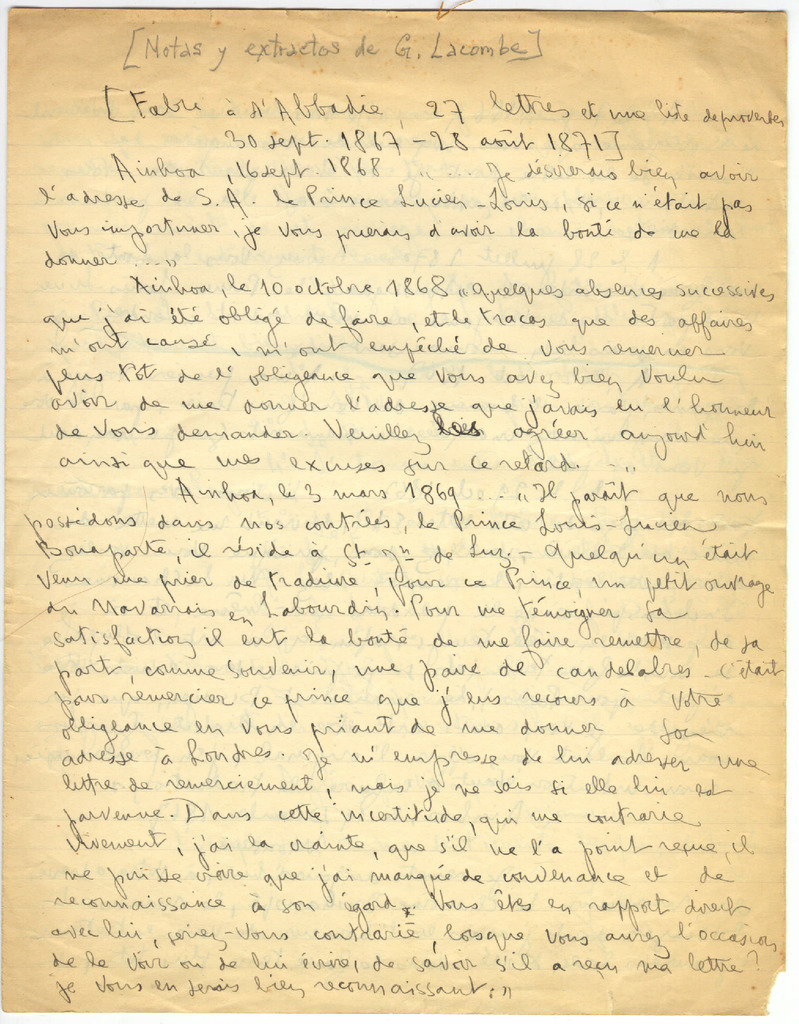 [Notas y extractos de G. Lacombe]
[Fabre à d'Abbadie, 27 lettres et une liste de proverbes
30 sept. 1867 – 28 août 1871]
Ainhoa, 16 sept. 1868 "... Je désirerais bien avoir
l'adresse de S. A. le Prince Lucien-Louis, si ce n'était pas
vous importuner, je vous prierais d'avoir la bonté de me la
donner ..."
Ainhoa, le 10 octobre 1868 "quelques absences successives
que j'ai été obligé de faire, et le tracas que des affaires
m'ont causé, m'ont empêché de vous remercier
plus tôt de l'obligeance que vous avez bien voulu
avoir de me donner l'adresse que j'avais eu l'honneur
de vous demander. Veuillez les agréer aujourd'hui
ainsi que mes excuses sur ce retard. .."
Ainhoa, le 3 mars 1869 ... "Il paraît que nous
possédons dans nos contrées, le Prince Louis-Lucien
Bonaparte, il réside à St Jn de Luz. – Quelqu'un était
venu me prier de traduire, pour ce Prince, un petit ouvrage
du Navarrais en Labourdin. Pour me témoigner sa
satisfaction il eut la bonté de me faire remettre, de sa
part, comme souvenir, une paire de candelabres. C'était
pour remercier ce prince que j'eus recours à votre
obligeance en vous priant de me donner son
adresse à Londres. Je m'empresse de lui adresser une
lettre de remerciement, mais je ne sais si elle lui est
parvenue. Dans cette incertitude, qui me contrarie
vivement, j'ai la crainte, que s'il ne l'a point reçue, il
ne puisse croire que j'ai manqué de convenance et de
reconnaissance à son égard. Vous êtes en rapport direct
avec lui, seriez-vous contrarié, lorsque vous aurez l'occasion
de le voir ou de lui écrire, de savoir s'il a reçu ma lettre?
je vous en serais bien reconnaissant."